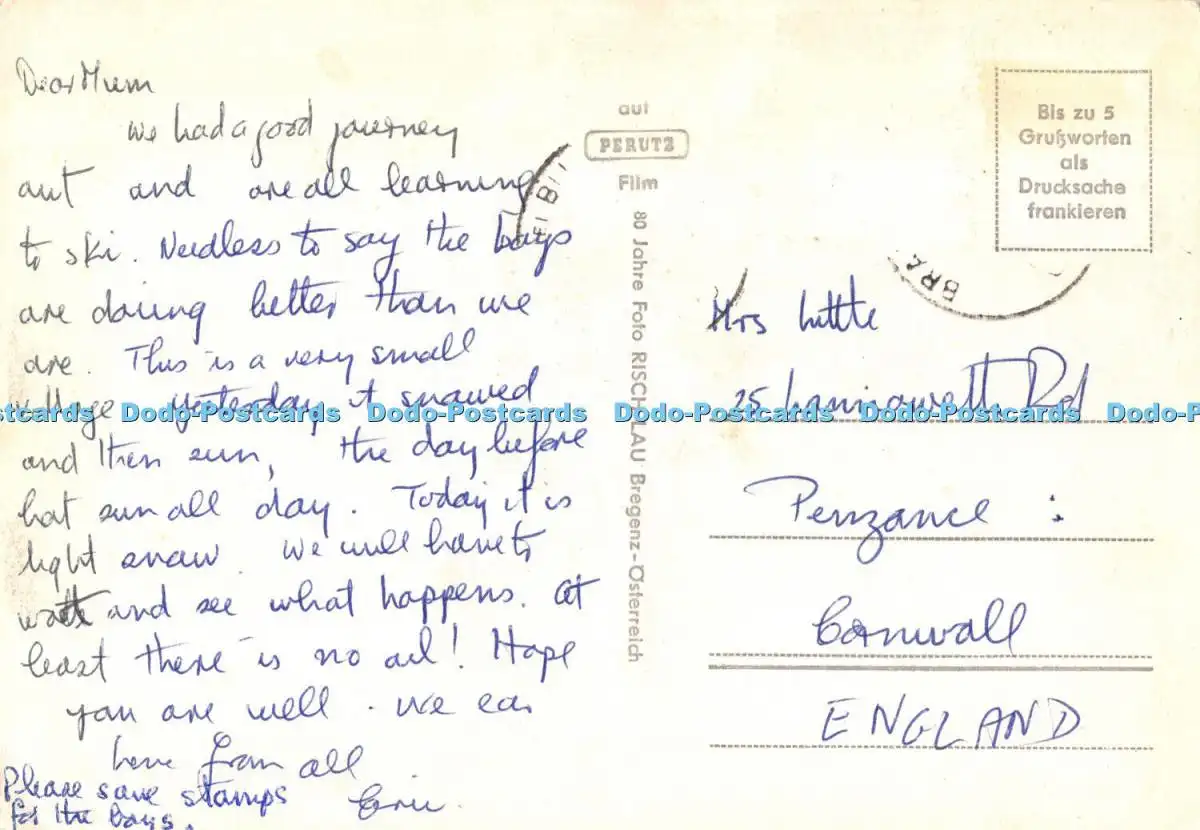 Dear Mum
We had a good journey
out and are all learning
to ski. Needless to say the boys
are doing better than we
are. This is a very small
village yesterday it snowed
and then sun, the day before
hot sun all day. Today it is
light snow. We will have to
wait and see what happens. At
least there is no oil! Hope
you are well. We
love from all
Please save stamps
for the boys.
aut
PERUTZ
Film
80 Jahre Foto RISCH-LAU Bregenz-Österreich
Bis zu 5
Grußworten
als
Drucksache
frankieren
BRA
Mrs Little
25 Rd
Penzance
Cornwall
ENGLAND
Dodo-Postcards Dodo-Postcards Dodo-Postcards